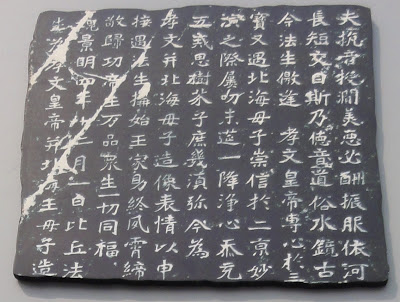 夫抗音投澗美惡必酬振服依河
長短交目斯乃德音道俗水鏡古
今法生儌逢 孝文皇帝專心於三
寶又遇北海母子崇信於二京妙
演之際屢叨末筵一降淨心忝充
五戒思樹芥子庶幾須彌今為
孝文并北海母子造像表情以申
接遇法生構始王家助終夙霄締
敬歸功帝王萬品眾生一切同福
魏景明四年十二月一日比丘法
生為孝文皇帝并北海王母子造